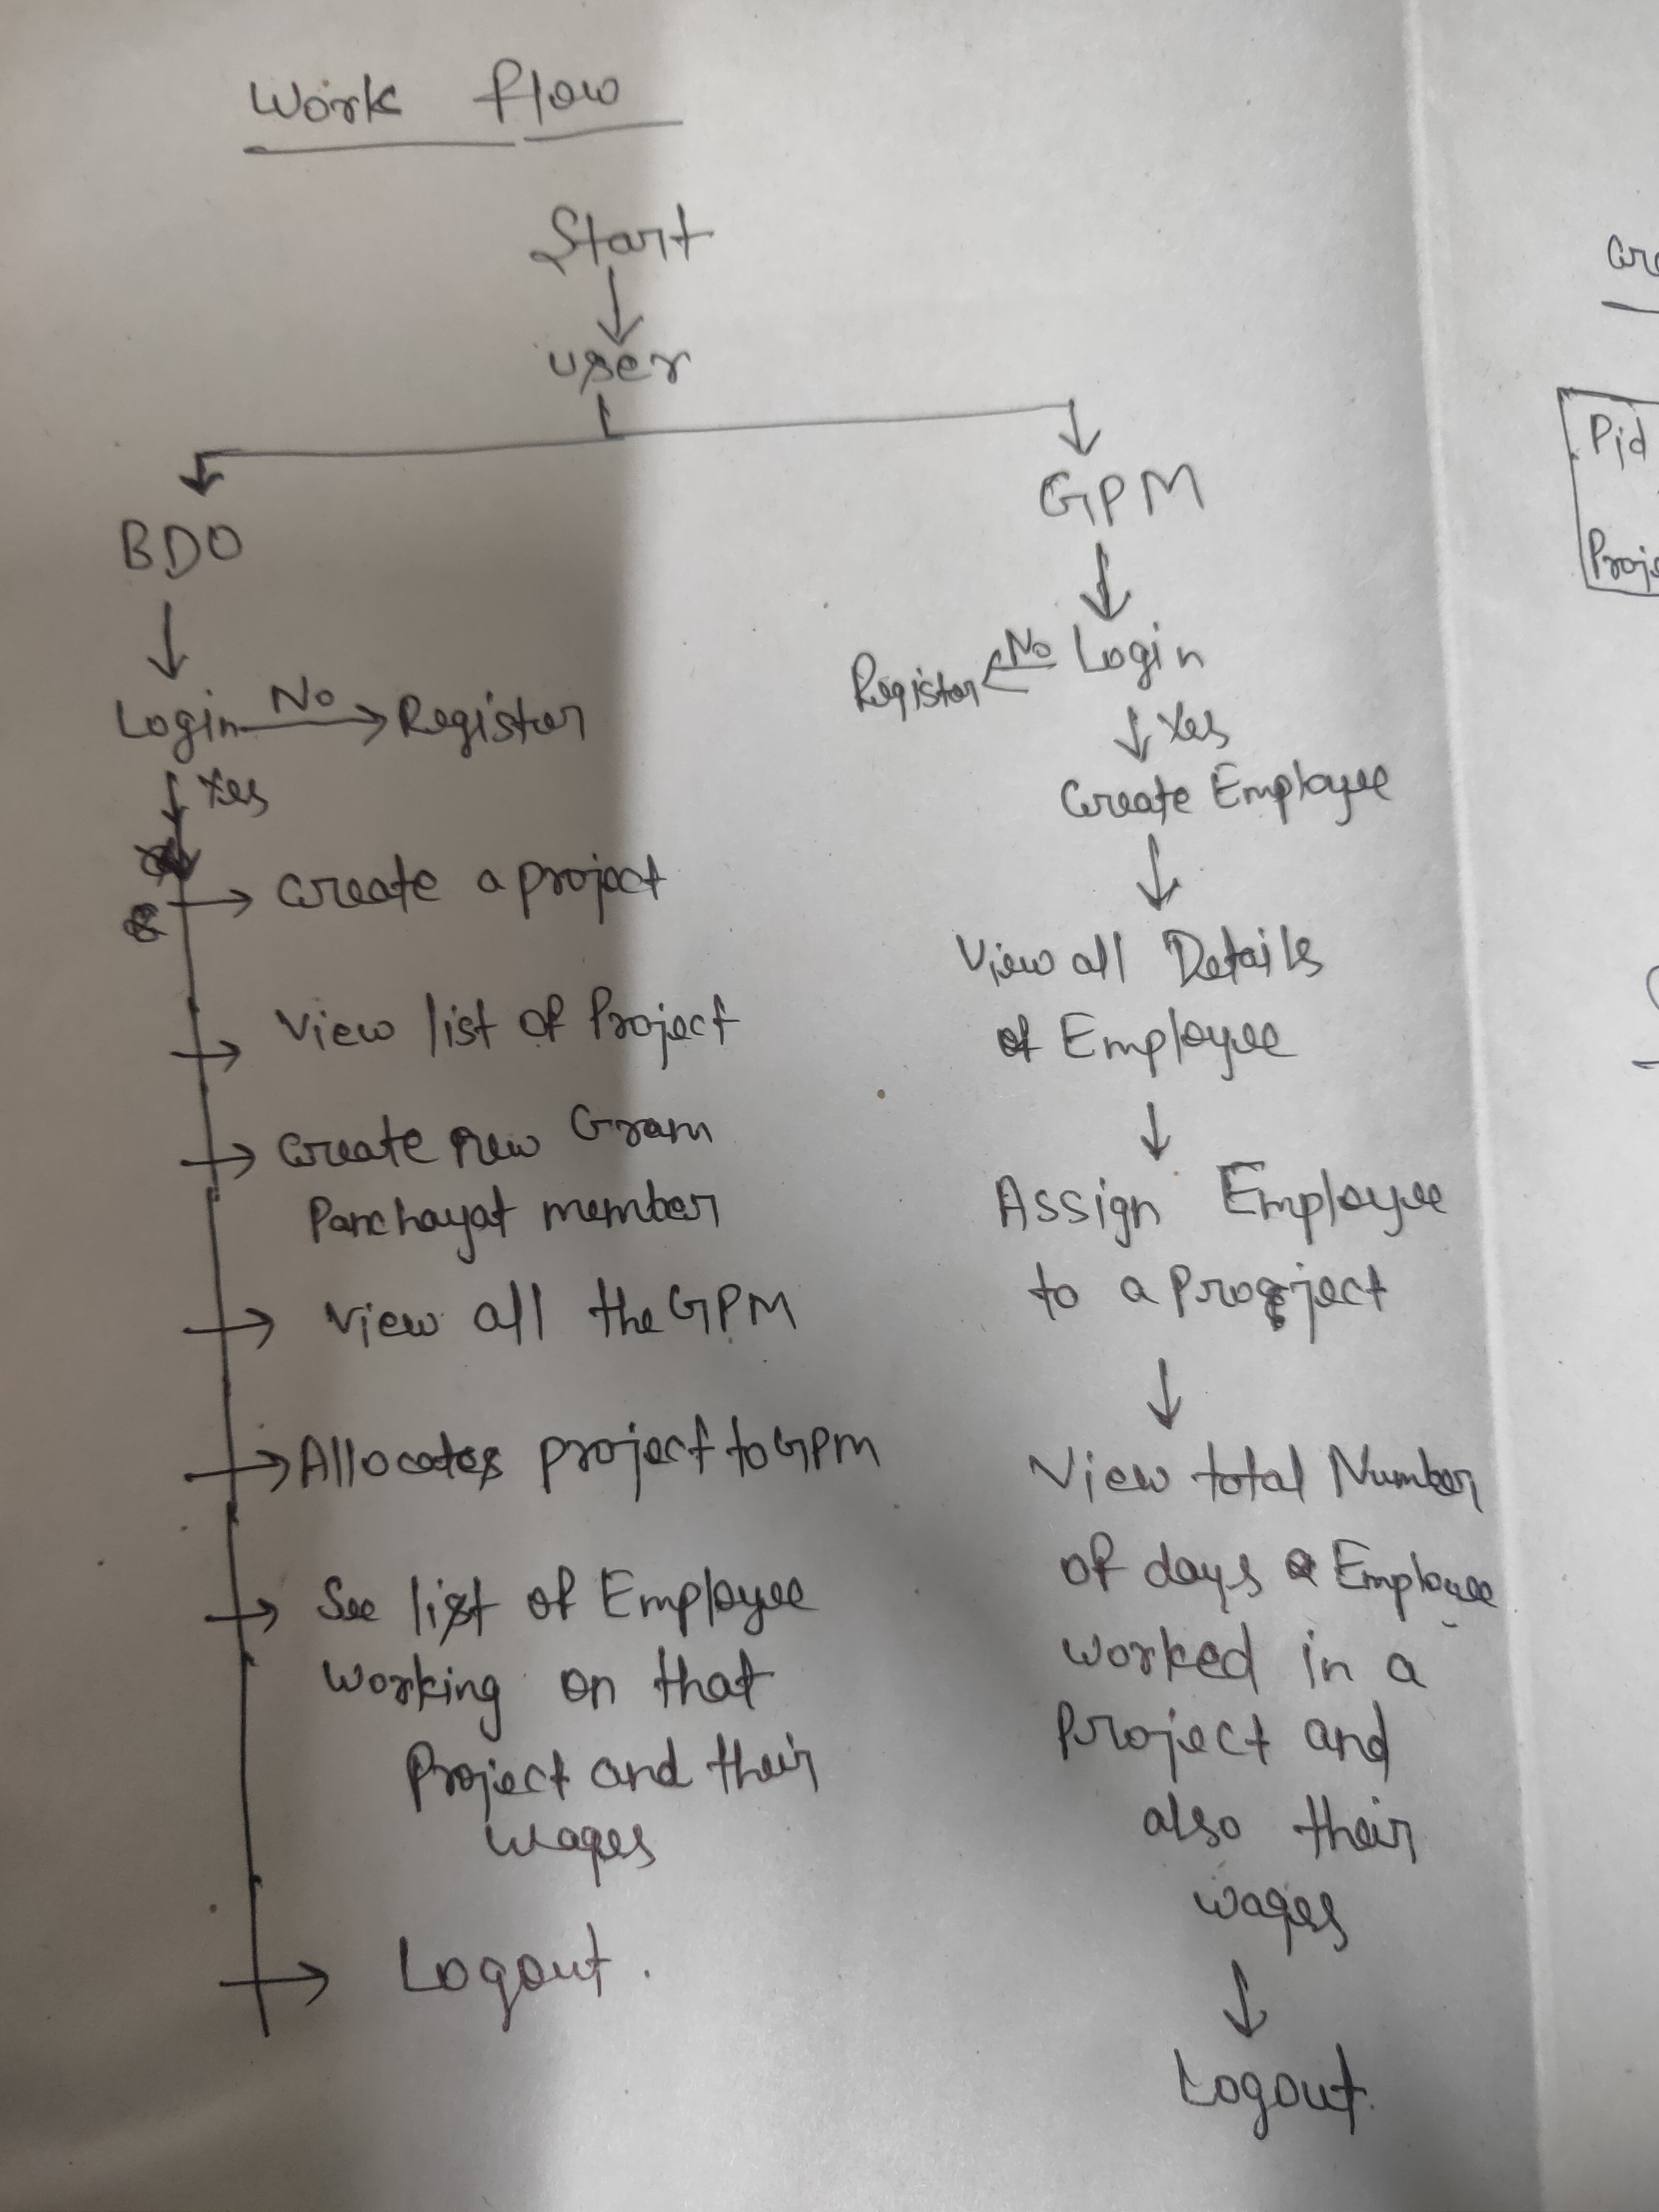 Work flow
Start
user
BDO
Login No Register
Yes
create a project
View list of Project
create new Gram
Panchayat member
view all the GPM
Allocates project to GPM
See list of Employee
working on that
Project and their
wages
Logout.
GPM
Register No Login
Yes
Create Employee
View all Details
of Employee
Assign Employee
to a Project
View total Number
of days a Employee
worked in a
Project and
also their
wages
Logout.
Pid